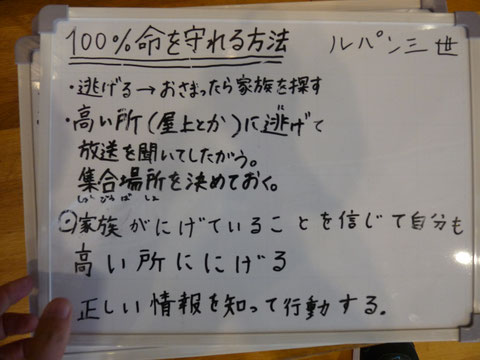 100%命を守れる方法 ルパン三世
・逃げる→おさまったら家族を探す
・高い所(屋上とか)に逃げて
放送を聞いてしたがう。
集合場所を決めておく。
しゅうごうばしょ
家族がにげていることを信じて自分も
高い所ににげる
正しい情報を知って行動する.